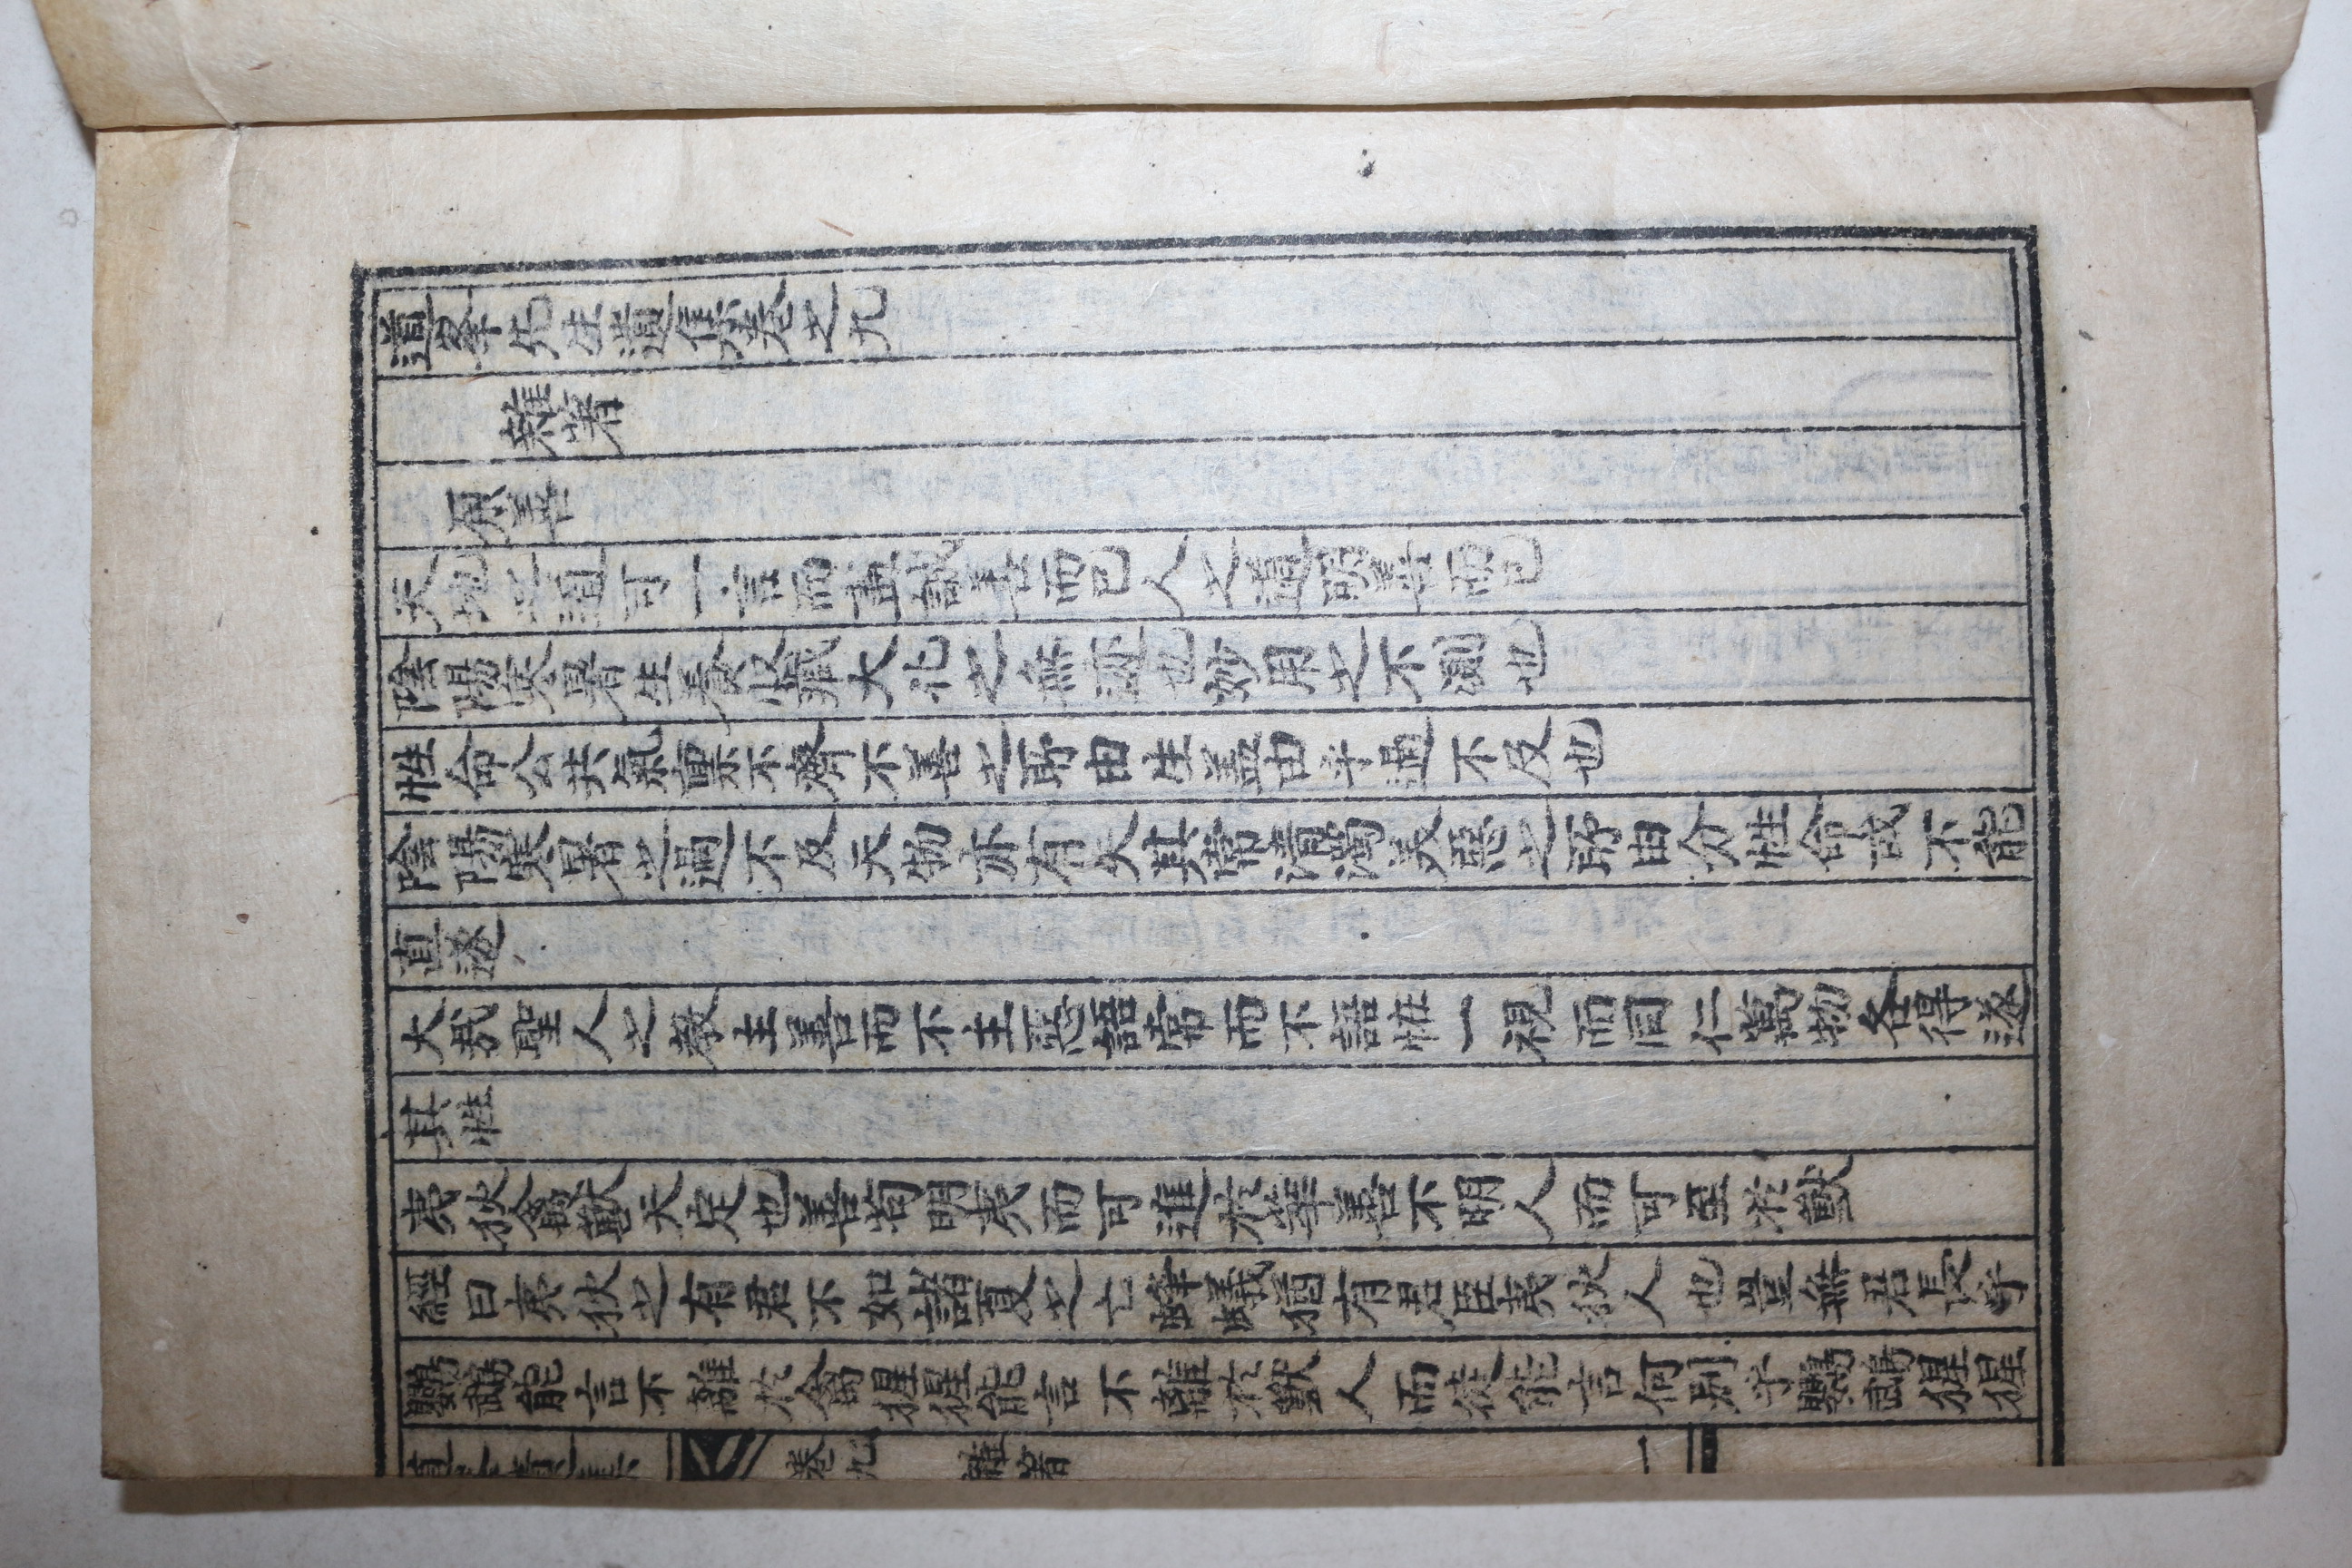 道峯先生遺集卷之九
雜著
原善
天地之道可一言而盡誠善而已人之道明善而已
陰陽寒暑生養收藏大化之無迹也妙用之不測也
性命公共氣稟不齊不善之所由生盖由乎過不及也
陰陽寒暑之過不及天地亦有失其常清濁美惡之所由分性命或不能
直遂
大哉聖人之教主善而不主惡語常而不語恠一視而同仁萬物各得遂
其性
夷狄禽獸天定也善苟明夷而可進於華善不明人而可至於獸
經曰夷狄之有君不如諸夏之亡蜂蟻猶有君臣夷狄人也豈無君長乎
鸚鵡能言不離於禽猩猩能言不離於獸人而徒能言何別乎鸚鵡猩猩
卷九 雜著 一